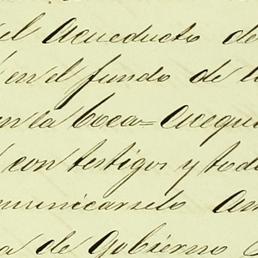 el Acueducto de
en el fundo de l
en la boca=acequi
con testigos y tod
municarselo An
a de Gobierno